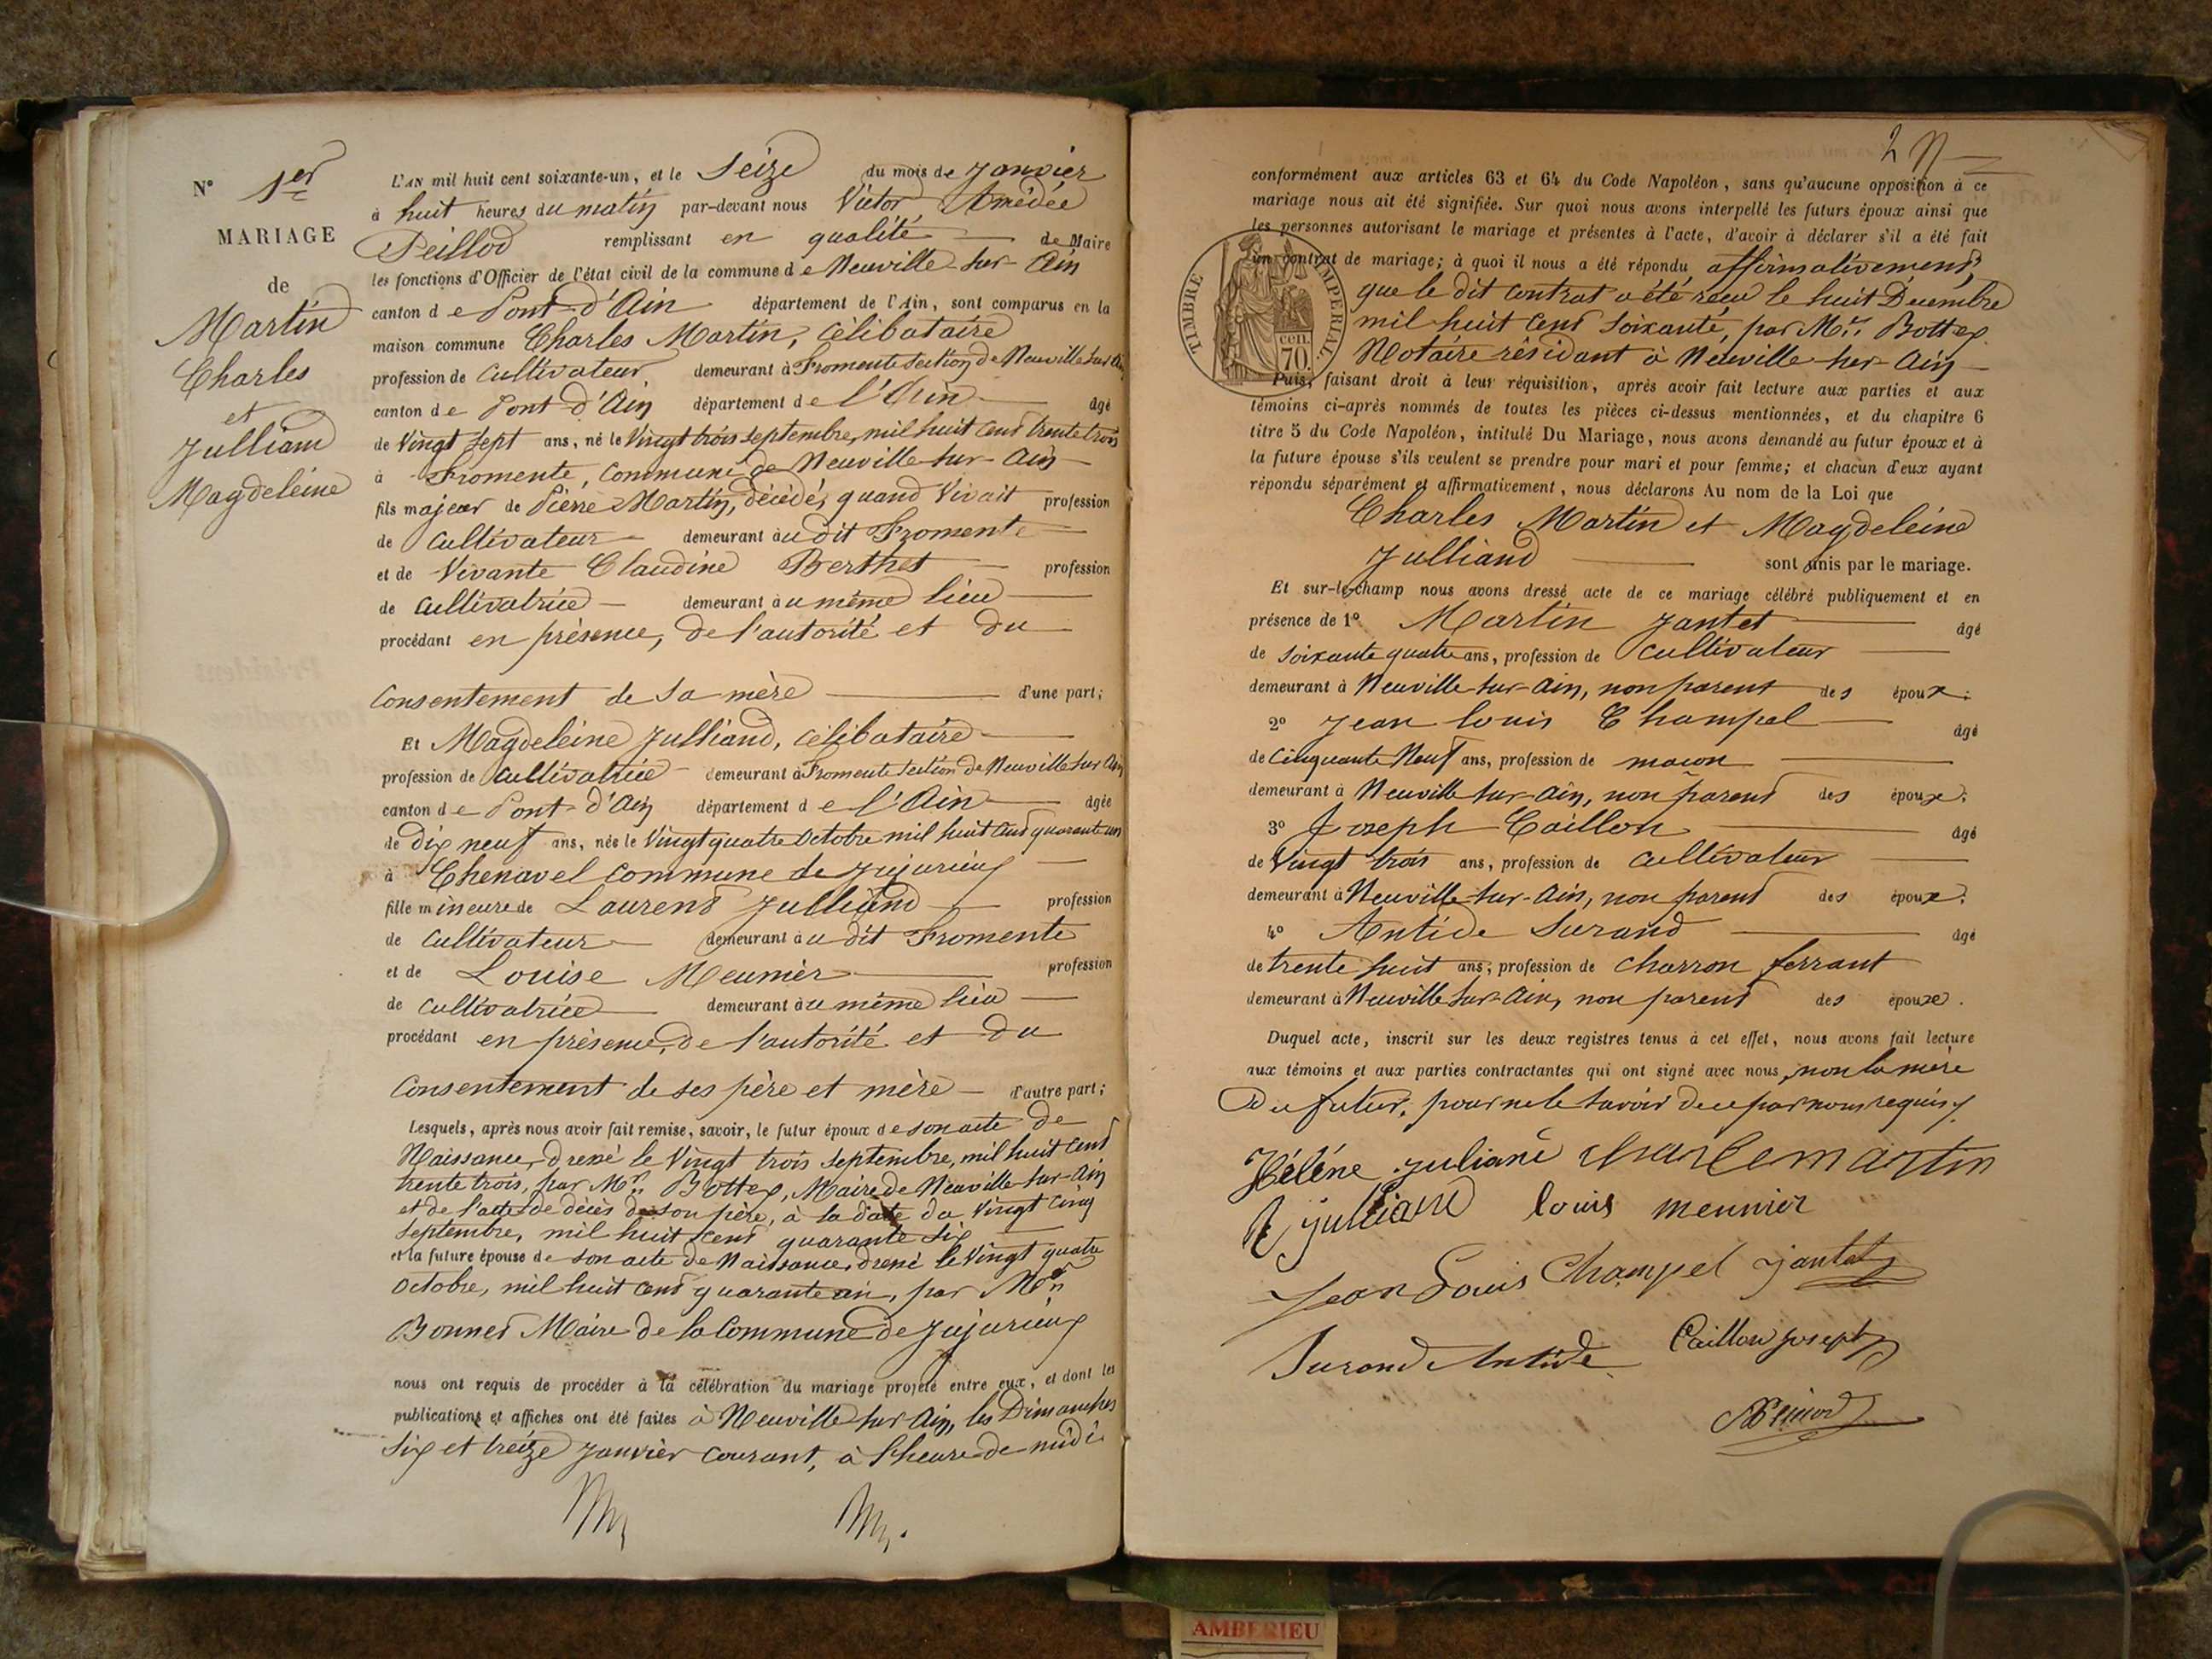 N° 1er
MARIAGE
de
Martin
Charles
et
Julliand
Magdeleine
L'AN mil huit cent soixante-un, et le Seize du mois de Janvier
à huit heures du matin par-devant nous Victor Amédée
Peillod remplissant en qualité de Maire
les fonctions d'Officier de l'état civil de la commune de Neuville-sur-Ain
canton de Pont-d'Ain département de l'Ain, sont comparus en la
maison commune Charles Martin, célibataire
profession de Cultivateur demeurant à Fromente section de Neuville sur Ain
canton de Pont-d'Ain département de l'Ain âgé
de Vingt Sept ans, né le Vingt trois septembre, mil huit cent trente trois
à Fromente, Commune de Neuville-sur-Ain
fils majeur de Pierre Martin, décédé, quand Vivait profession
de Cultivateur demeurant au dit Fromente
et de Vivante Claudine Berthet profession
de Cultivatrice demeurant au même lieu
procédant en présence, de l'autorité et du
Consentement de sa mère d'une part;
Et Magdeleine Julliand, célibataire
profession de Cultivatrice demeurant à Fromente section de Neuville sur Ain
canton de Pont-d'Ain département de l'Ain âgée
de Dix neuf ans, née le Vingt quatre Octobre mil huit cent quarante un
à Chenavel Commune de Jujurieux
fille mineure de Laurent Julliand profession
de Cultivateur demeurant au dit Fromente
et de Louise Meunier profession
de Cultivatrice demeurant au même lieu
procédant en présence, de l'autorité et du
Consentement de ses père et mère d'autre part;
Lesquels, après nous avoir fait remise, savoir, le futur époux de son acte de
Naissance, dressé le Vingt trois Septembre, mil huit cent
trente trois, par Mr. Bottex, Maire de Neuville-sur-Ain
et de l'acte de décès de son père, à la date du Vingt cinq
Septembre, mil huit cent quarante six
et la future épouse de son acte de Naissance, dressé le Vingt quatre
Octobre, mil huit cent quarante un, par Mr.
Bonnet Maire de la Commune de Jujurieux
nous ont requis de procéder à la célébration du mariage projeté entre eux, et dont les
publications et affiches ont été faites à Neuville sur Ain, les Dimanches
Six et treize Janvier Courant, à l'heure de midi
2
conformément aux articles 63 et 64 du Code Napoléon, sans qu'aucune opposition à ce
mariage nous ait été signifiée. Sur quoi nous avons interpellé les futurs époux ainsi que
les personnes autorisant le mariage et présentes à l'acte, d'avoir à déclarer s'il a été fait
un contrat de mariage; à quoi il nous a été répondu affirmativement,
que le dit contrat a été reçu le huit Décembre
mil huit cent soixante, par Mr. Bottex
Notaire résidant à Neuville sur-Ain
TIMBRE IMPERIAL.
cen.
70.
Puis, faisant droit à leur réquisition, après avoir fait lecture aux parties et aux
témoins ci-après nommés de toutes les pièces ci-dessus mentionnées, et du chapitre 6
titre 5 du Code Napoléon, intitulé Du Mariage, nous avons demandé au futur époux et à
la future épouse s'ils veulent se prendre pour mari et pour femme; et chacun d'eux ayant
répondu séparément et affirmativement, nous déclarons Au nom de la Loi que
Charles Martin et Magdeleine
Julliand sont unis par le mariage.
Et sur-le-champ nous avons dressé acte de ce mariage célébré publiquement et en
présence de 1° Martin Jantet âgé
de soixante quatre ans, profession de Cultivateur
demeurant à Neuville-sur-Ain, non parent des époux;
2° Jean Louis Champel âgé
de Cinquante Neuf ans, profession de maçon
demeurant à Neuville sur-Ain, non parent des époux;
3° Joseph Caillon âgé
de Vingt trois ans, profession de Cultivateur
demeurant à Neuville-sur-Ain, non parent des époux;
4° Antide Surand âgé
de trente huit ans, profession de Charron ferrant
demeurant à Neuville sur-Ain, non parent des époux.
Duquel acte, inscrit sur les deux registres tenus à cet effet, nous avons fait lecture
aux témoins et aux parties contractantes qui ont signé avec nous, non la mère
du futur, pour ne le savoir de ce par nous requis.
Hélène juliané charle martin
julliand louis meunier
Jean Louis Champel Jantet
Surand Antide Caillon joseph
AMBERIEU